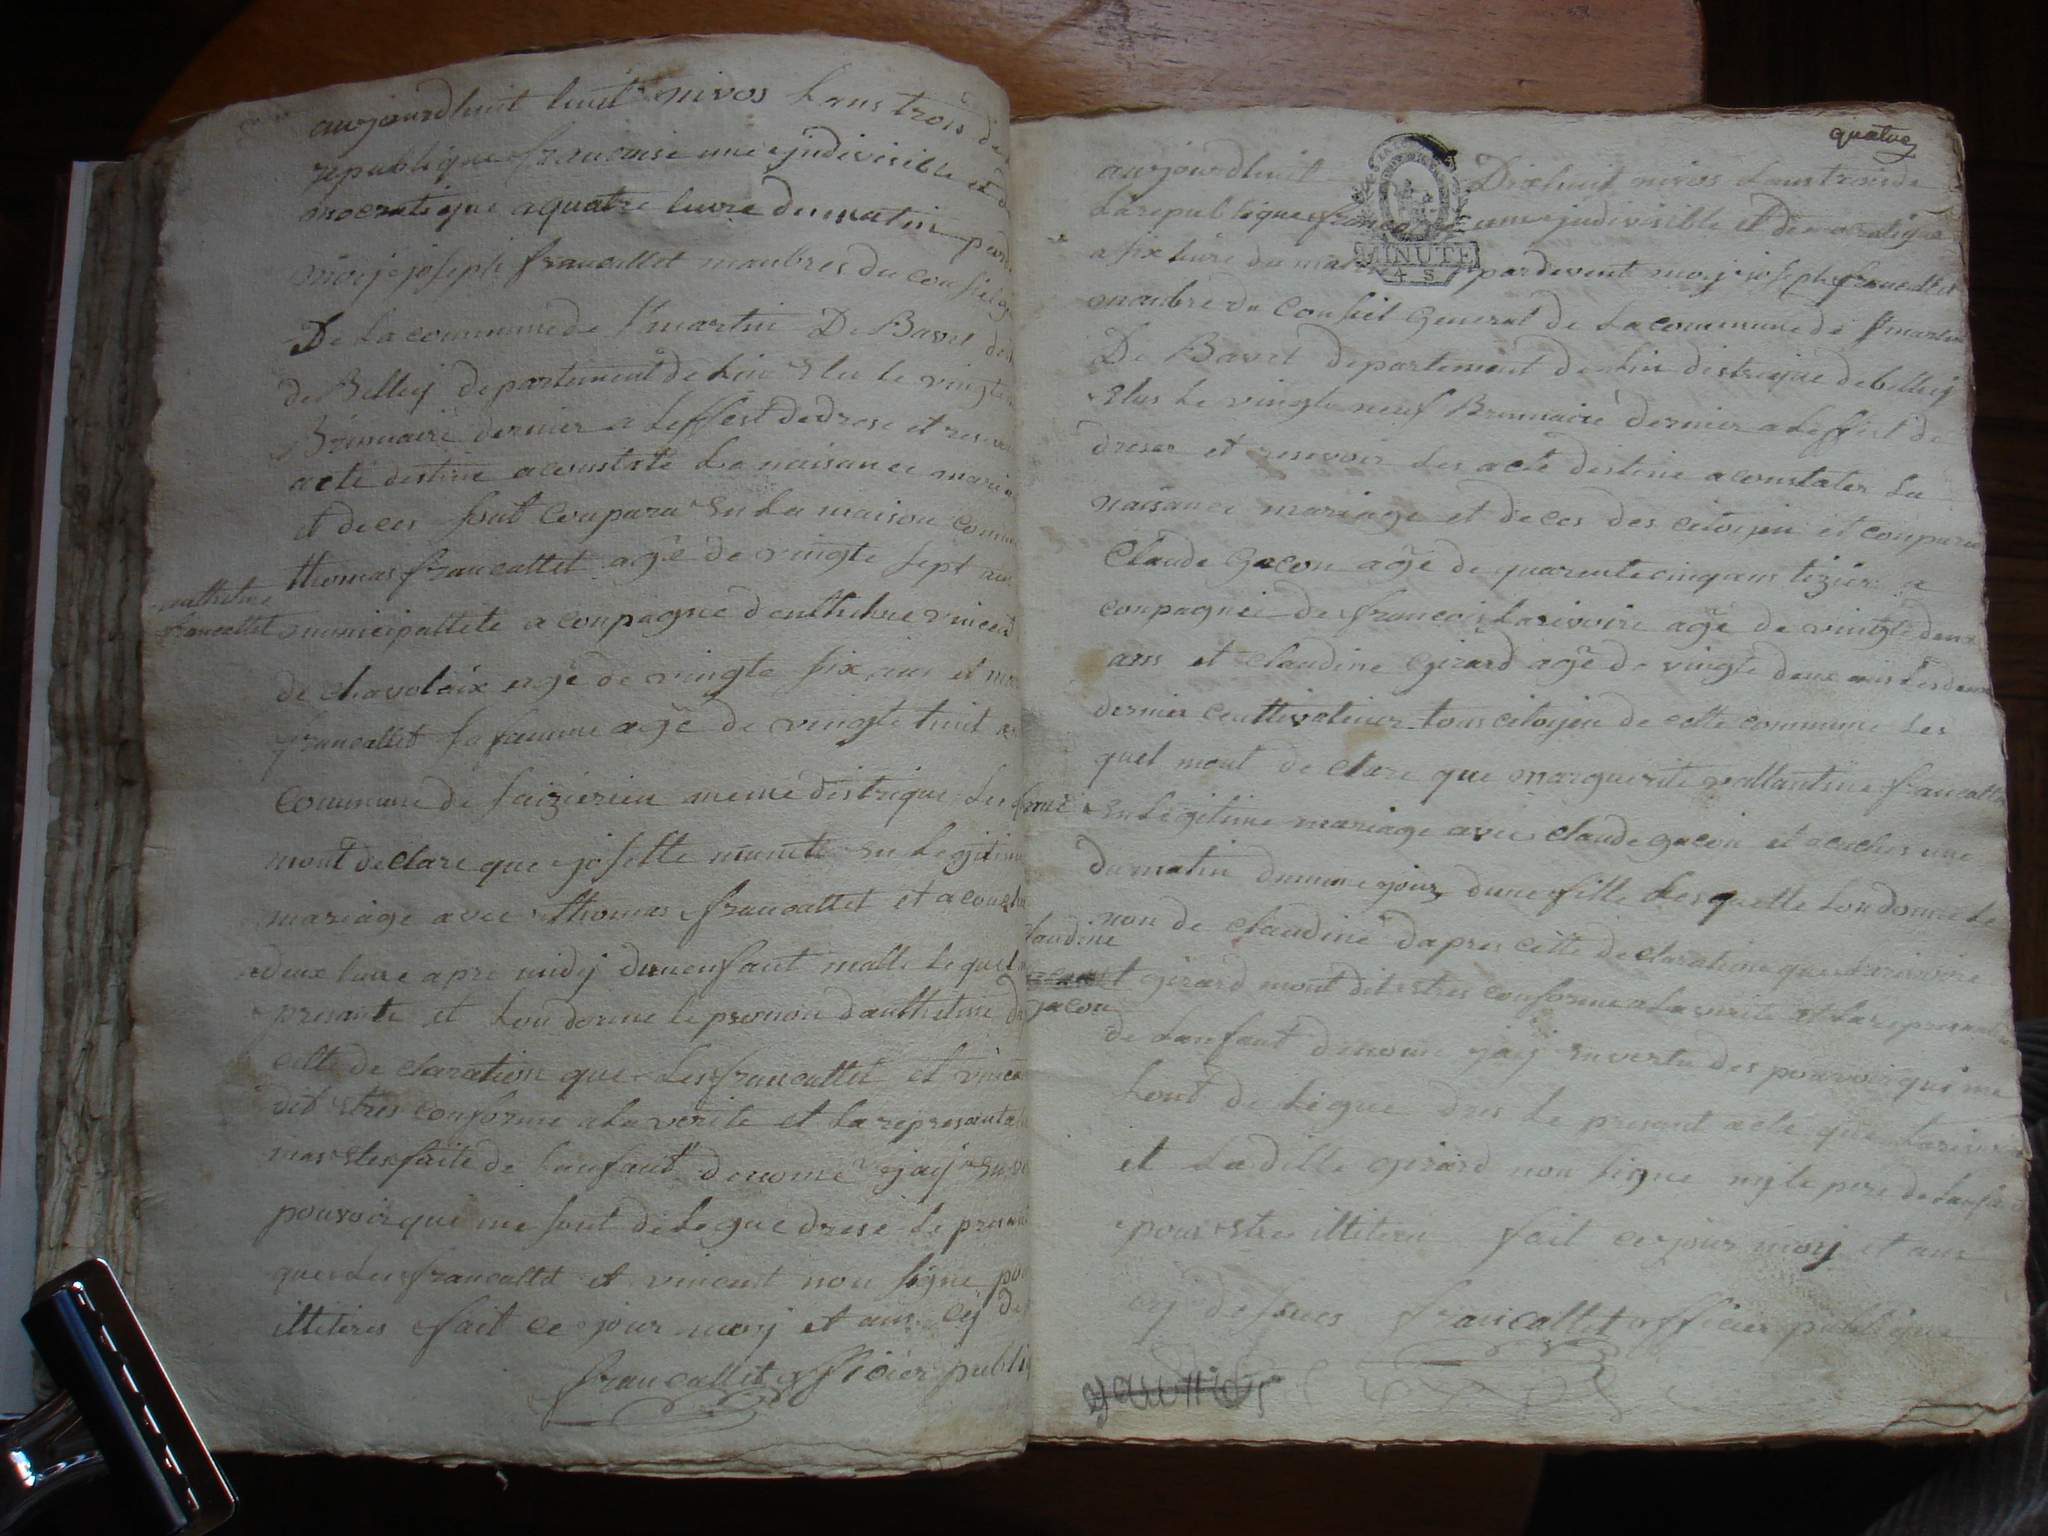 aujourdhuit huit nivos Lans trois de
republique francaise une ejndivisible et d
mocratique a quatre heure du matin pard
moij joseph francallet manbres du consiel g
De La commune de St martin De Bavel dist
de Belleij departement de Lin Elu le vingte
Brimaire dernier a Leffest dedrese et resevoi
acte destine aconstate La naisance maria
et deces sont conparu En La maison comm
thomas francallet agé de vingte sept ans
municipallete a conpagné danthelme vincent
de chavoleix agé de vingte six ans et
francallet sa famme agé de vingte huit
commune de seizérieu meme distrique Les
mont declare que josette En Legitime
mariage avec thomas francallet et acouche
a deux heure apre midij dun enfant malle Lequel
presante et Lon donne le prenon danthelme
cette declaration que Les francallet et vincen
dit Estres conforme a La verite et La represanta
mas Estes faite de Lanfant denomé jaij En ve
pouvoir que me sont delegue drese Le presant
que Les francallet et vincent non signe pou
illiteres fait ce jour moij et ans cij de
francallet officier public
anthelme
francallet
quatre
aujourdhuit Dixhuit nivos Lans trois de
La republique francaise une ejndivisible et democratique
a six heure du matin pardevent moij joseph francallet
manbre du Consiel General de La commune de St martin
De Bavel departement de Lin distrique de belleij
Elus Le vingte neuf Brumaire dernier a Leffest de
dreser et resevoir Les acte destine aconstater La
naisance mariage et deces des citoijen et conparu
Claude Gacon agé de quarente cinq ans a
conpagnei de francois Larivoire agé de vingte deux
ans et claudine Girard agé de vingte deux ans Les deux
dernier cultivateur tous citoijen de cette commune Les
quel mont declare que marguerite vallantine francallet
En Legitime mariage avec claude gacon et acouches une
du matin du meme jour dune fille Lesquelle Lon donne Le
non de claudine dapres cette declaration que Larivoire
et girard mont dit Estres conforme a La verite et La represant
de Lanfant denomé jaij En vertu des pouvoir qui me
sont delegue dres Le presant acte que Larivoire
et Ladille girard non signe nij le pere de Lanfan
pour Estre illitéres fait ce jour moij et ans
cij dessues francallet officier publique
claudine
gacon
MINUTE
4 S